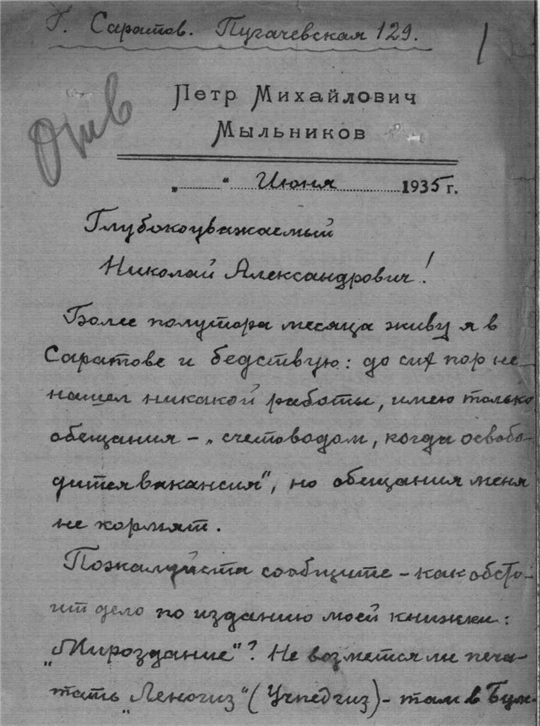 Г. Саратов. Пугачевская 129.
1
Отв
Петр Михайлович
Мыльников
„ “ Июня 1935 г.
Глубокоуважаемый
Николай Александрович!
Более полутора месяца живу я в
Саратове и бедствую: до сих пор не
нашел никакой работы, имею только
обещания – „счетоводом, когда освобо-
дится вакансия“, но обещания меня
не кормят.
Пожалуйста сообщите – как обсто-
ит дело по изданию моей книжки:
„Мироздание“? Не возмется ли печа-
тать „Леногиз“ (Учпедгиз) – там в